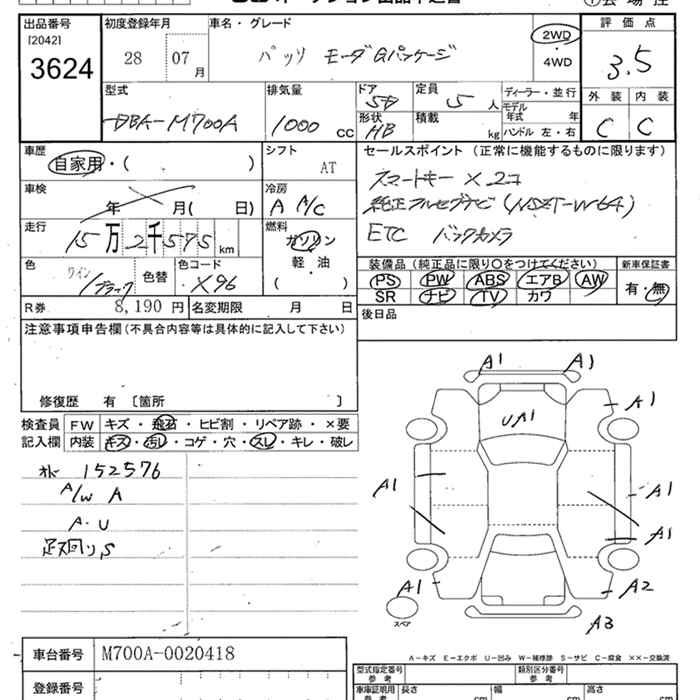 出品番号
[2042]
3624
初度登録年月
28 07
月
車名・グレード
パッソ モーダGパッケージ
2WD
・
4WD
評価点
3.5
外装 内装
C C
型式
DBA-M700A
排気量
1000 CC
ドア
5D
定員
5 人
形状
HB
積載
kg
ディーラー・並行
モデル
年式 年
ハンドル 左・右
車歴
自家用・( )
シフト
AT
車検
年 月( 日)
冷房
A A/C
走行
15万2千575 km
燃料
ガソリン
軽・油
( )
色
ワイン
/ブラック
色替
色コード
X96
R券 8,190 円
名変期限 月 日
セールスポイント (正常に機能するものに限ります)
スマートキー × 2コ
純正フルセグナビ (NSZT-W64)
ETC バックカメラ
装備品 (純正品に限り○をつけてください)
新車保証書
PS PW ABS エアB AW
SR ナビ TV カワ
有・無
後日品
注意事項申告欄 (不具合内容等は具体的に記入して下さい)
修復歴 有 〔箇所 〕
検査員
記入欄
FW キズ・飛石・ヒビ割・リペア跡・×要
内装 キズ・汚れ・コゲ・穴・スレ・キレ・破レ
オド 152576
A/W A
A・U
足回りS
A1 A1
A1
UA1
A1
A1
A1
A1
A2
A3
スペア
A-キズ E-エクボ U-凹み W-補修跡 S-サビ C-腐食 ××-交換済
車台番号 M700A-0020418
登録番号
型式指定番号
参考
類別区分番号
参考
車庫証明用
参考
長さ cm
幅 cm
高さ cm